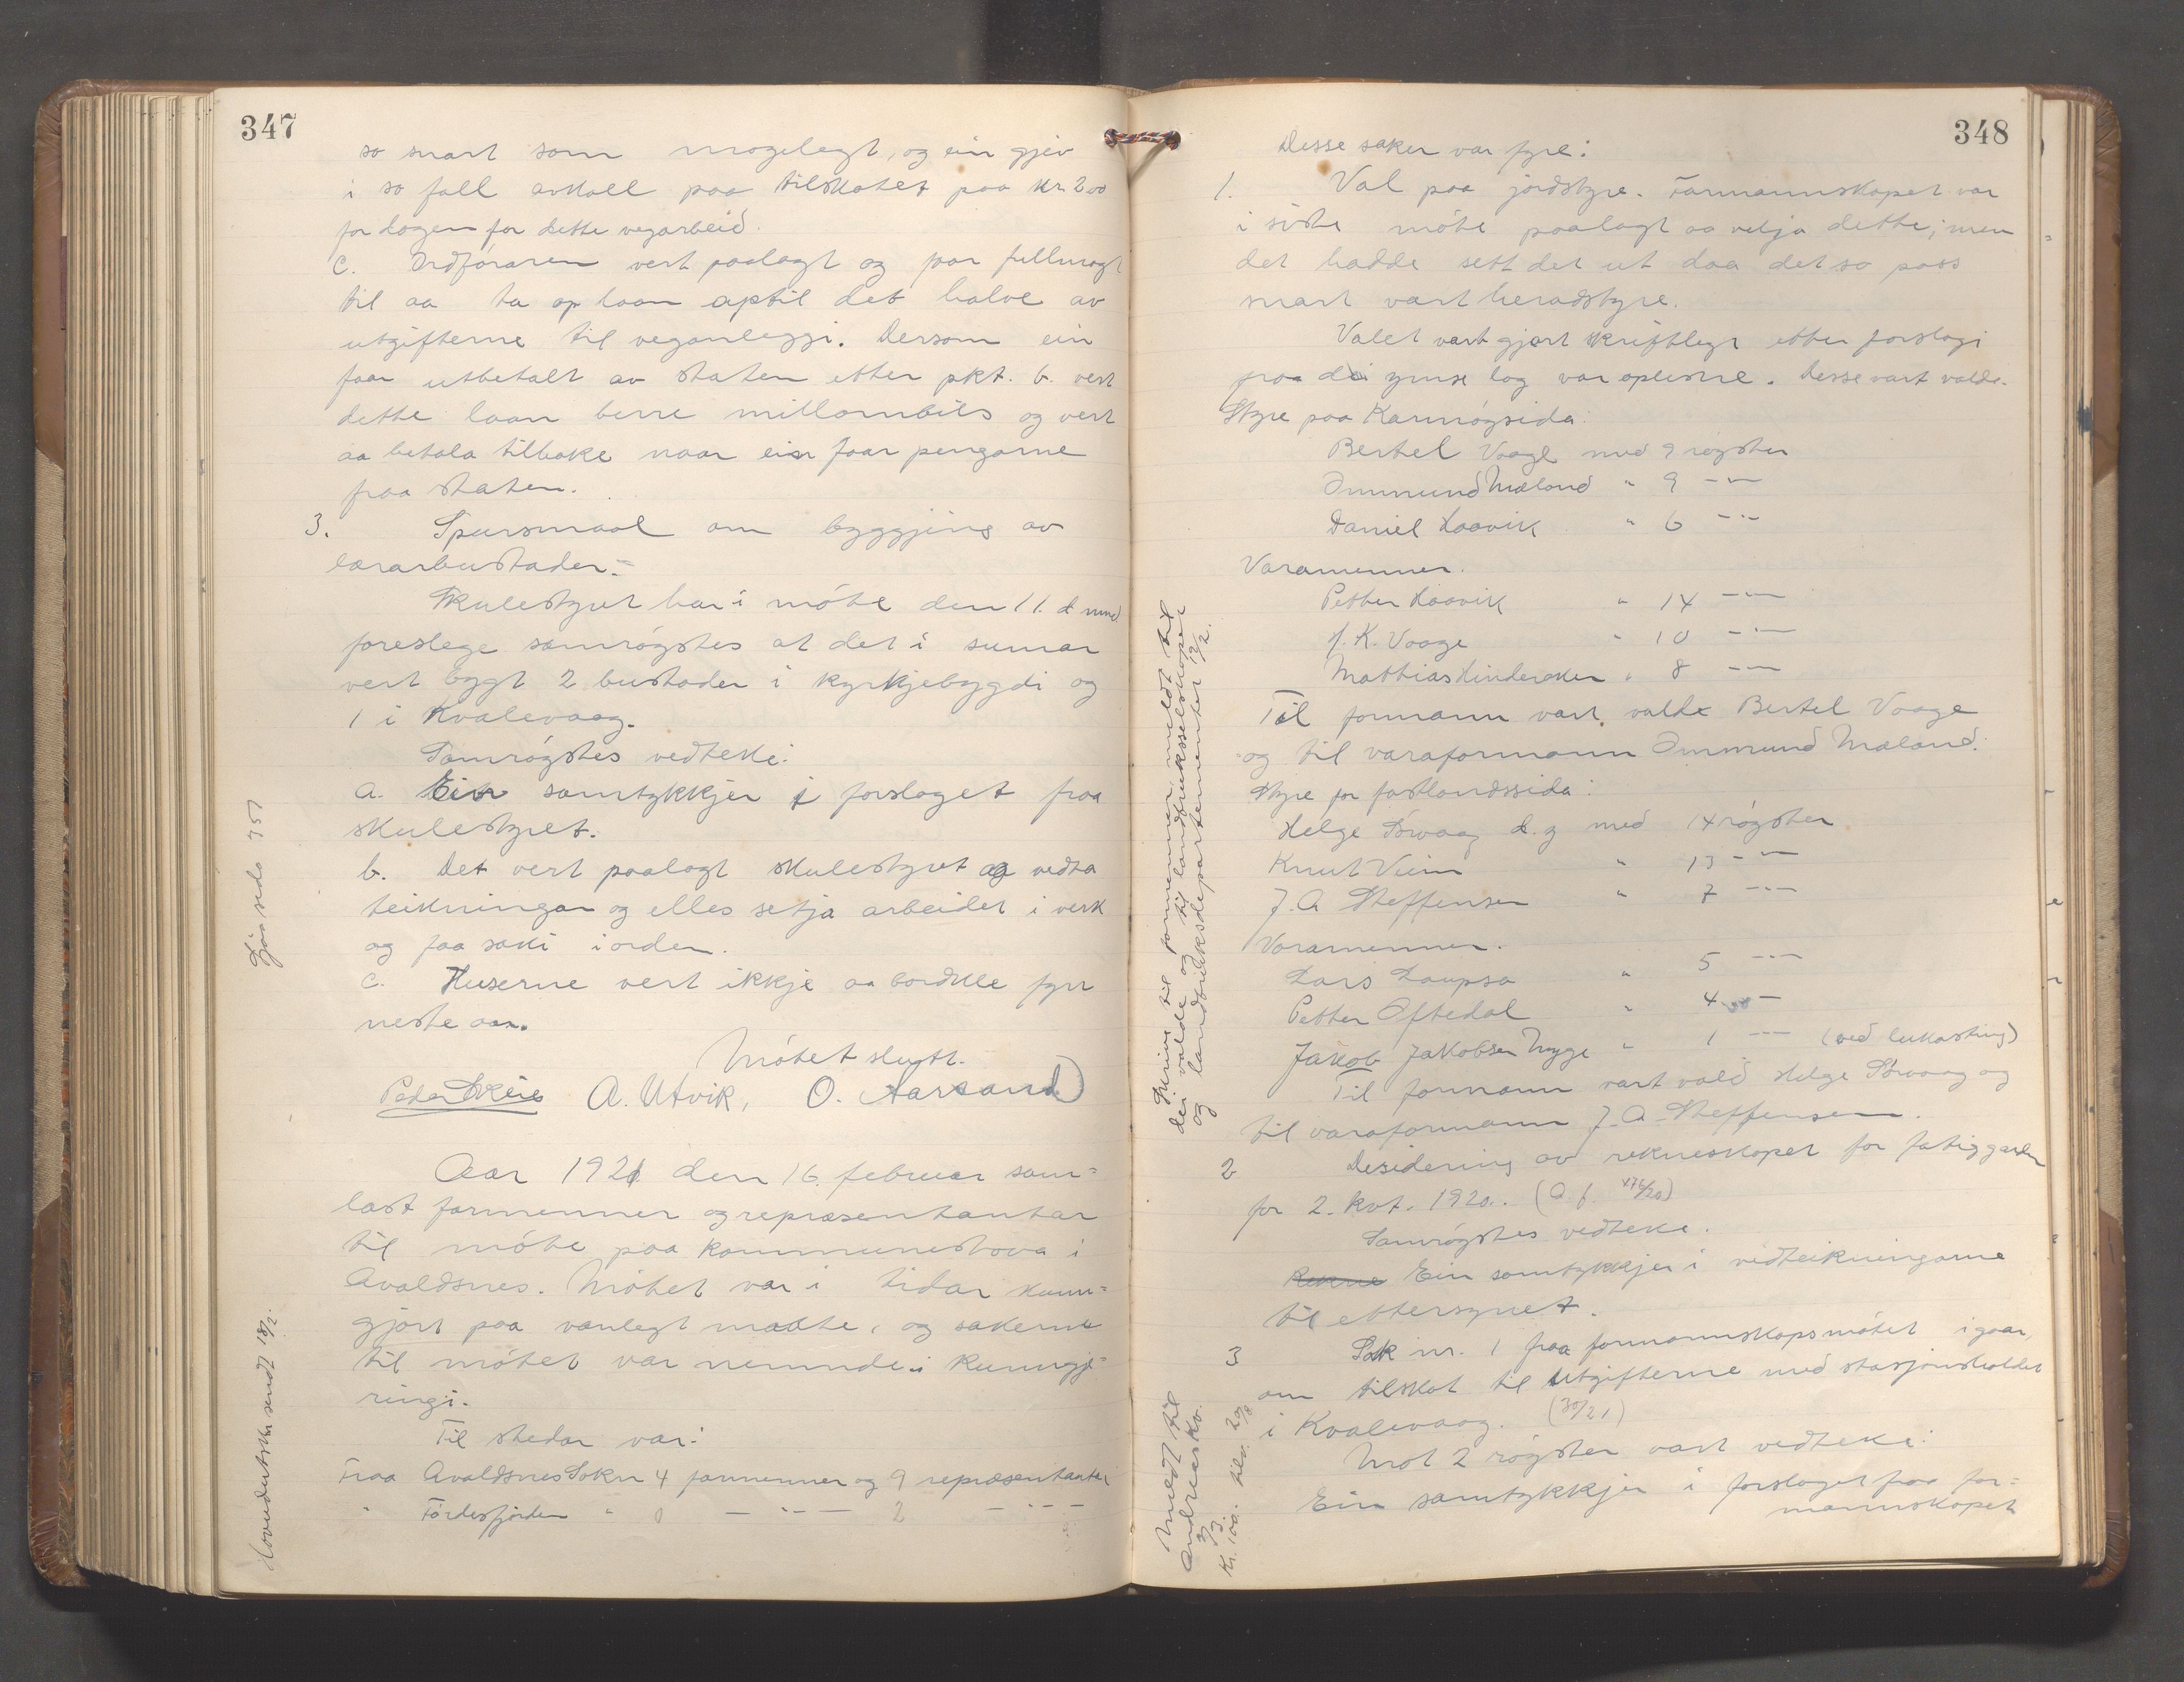 347
so snart som mogelegt, og ein gjev
i so fall avkall paa tilskotet paa kr. 200
for dagen for dette vegarbeid.
c. Ordføraren vert paalagt og faar fullmagt
til aa ta op laan optil det halve av
utgifterne til veganleggi. Dersom ein
faar utbetalt av staten etter pkt. b. vert
dette laan berre millombils og vert
aa betala tilbake naar ein faar pengarne
fraa staten.
3. Spursmaal om byggjing av
lærarbustader.
Skulestyret har i møte den 11. d mnd
foreslege samrøystes at det i sumar
vert bygt 2 bustader i kyrkjebygdi og
1 i Kvalevaag.
Samrøystes vedteke:
a. Ein samtykkjer i forslaget fraa
skulestyret.
b. Det vert paalagt skulestyret og vedta
teikningar og elles setja arbeidet i verk
og faa saki i orden.
c. Huserne vert ikkje aa bordkle fyrr
neste aar.
Møtet slutt.
Peder Skeie A. Utvik, O. Aarsand
Sjaa sida 351
Aar 1921 den 16. februar sam=
last formenner og repræsentantar
til møte paa kommunestova i
Avaldsnes. Møtet var i tidar kunn=
gjort paa vanlegt maate, og sakerne
til møtet var nemnde i kunngje=
ringi.
Til stedar var:
Fraa Avaldsnes Sokn 4 formenner og 9 repræsentantar
" Førdesfjorden " 0 — " — 2 — " —
Hovudutskr. sendt 18/2.
348
Desse saker var fyre:
1. Val paa jordstyre. Formannskapet var
i siste møte paalagt aa velja dette; men
det hadde sett det ut daa det so pass
snart vart heradstyre.
Valet vart gjort skriftlegt etter forslagi
fraa dei ymse lag var oplesne. Desse vart valde.
Styre paa Karmøysida:
Bertel Vaage med 9 røyster
Ommund Mæland " 9 — " —
Daniel Haavik " 6 — " —
Varamenner.
Petter Haavik " 14 — " —
J. K. Vaage " 10 — " —
Mattias Hinderaker " 8 — " —
Til formann vart valde Bertel Vaage
og til varaformann Ommund Mæland.
Styre for fastlandssida:
Helge Stvaag d.y med 14 røyster
Knut Viin " 13 — " —
J. A. Steffensen " 7 — " —
Varamenner.
Lars Laupsa " 5 — " —
Petter Oftedal " 4 — " —
Jakob Jakobsen Mygge " 1 — " — (ved lukasting)
Til formann vart vald Helge Stvaag og
til varaformann J. A. Steffensen.
Skrive til formenner, meldt til
dei valde og til landbruksselskapet
og landbruksdepartementet 19/2.
2 Desidering av rekneskapet for fatiggarden
for 2. kvt. 1920. (a. f. 476/20)
Samrøystes vedteke.
Ein samtykkjer i vedteikningarne
til ettersynet.
3 Sak nr. 1 fraa formannskapsmøtet igaar,
om tilskot til utgifterne med stasjonsholdet
i Kvalevaag. (30/21)
Mot 2 røyster vart vedteke:
Ein samtykkjer i forslaget fraa for=
mannskapet
Meldt til
Andreas Kv.
3/3.
Kr. 100. tilv. 20/8